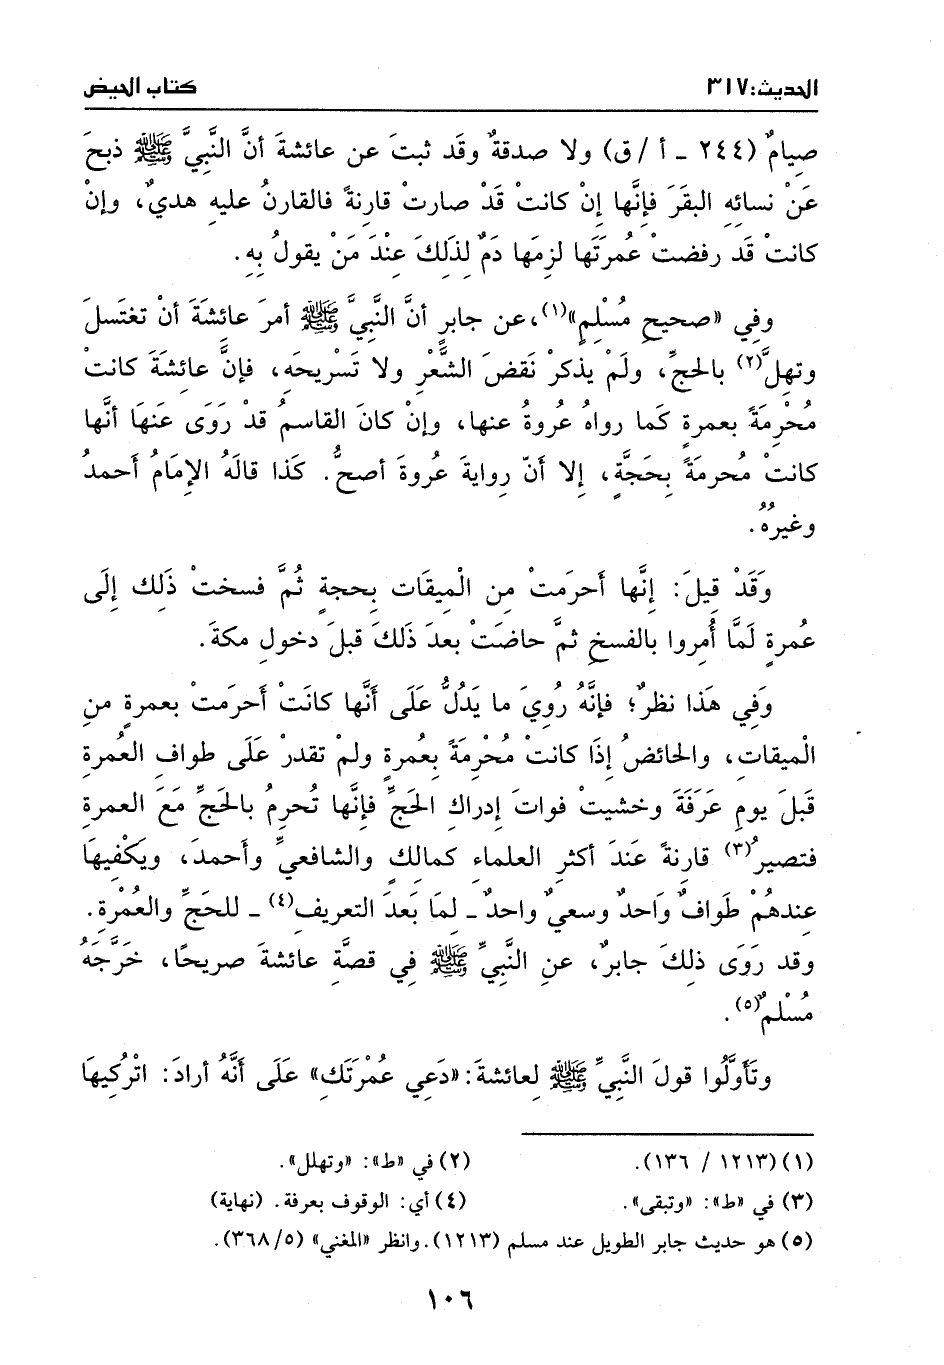 الحديث: ٣١٧
كتاب الحيض
صيامٌ (٢٤٤ ـ أ / ق) ولا صدقةٌ وقَد ثبتَ عن عائشةَ أنَّ النَّبيَّ ﷺ ذبحَ
عَنْ نسائِهِ البقَرَ فإنَّها إنْ كانتْ قَدْ صارتْ قارنةً فالقارنُ عليهِ هديٌ، وإنْ
كانتْ قَد رفضتْ عُمرَتَها لزِمَها دَمٌ لِذَلِكَ عِنْدَ مَنْ يقولُ بِهِ.
وفِي «صحيحِ مُسْلِمٍ»(١)، عن جابرٍ أنَّ النَّبيَّ ﷺ أمرَ عائشَةَ أنْ تغتَسلَ
وتهِلَّ(٢) بالحجِّ، ولَمْ يذكرْ نَقضَ الشَّعْرِ ولا تَسْريحَه، فإنَّ عائشَةَ كانتْ
مُحْرِمَةً بعمرةٍ كَما رواهُ عُروةُ عنها، وإنْ كانَ القاسمُ قدْ رَوَى عَنهَا أنَّها
كانتْ مُحرمَةً بحَجَّةٍ، إلا أنّ روايةَ عُروةَ أصحُّ. كَذا قالَهُ الإمَامُ أحمدُ
وغيرُهُ.
وَقَدْ قِيلَ: إنَّها أَحرَمتْ مِن الْمِيقَات بِحجةٍ ثُمَّ فسختْ ذَلِك إلَى
عُمرةٍ لَمَّا أُمِروا بالفسخِ ثمَّ حاضَتْ بعدَ ذَلكَ قبلَ دخولِ مكةَ.
وَفِي هَذا نظرٌ؛ فإنَّهُ رُويَ ما يَدُلُّ عَلَى أَنَّها كانَتْ أَحرَمتْ بعمرةٍ منِ
الْميقاتِ، والحائضُ إذَا كانتْ مُحْرِمَةً بِعُمرةٍ ولمْ تقدرْ عَلَى طوافِ العُمرةِ
قبلَ يومِ عَرَفَةَ وخشيتْ فواتَ إدراكِ الحَجِّ فإنَّها تُحرِمُ بالحَجِّ مَعَ العمرةِ
فتصيرُ(٣) قارنةً عَندَ أكثرِ العلماءِ كمالكٍ والشافعيِّ وأحمدَ، ويَكْفِيهَا
عندهُمْ طَوافٌ وَاحدٌ وسعيٌ واحدٌ ـ لمَا بَعدَ التعريفِ(٤) ـ للحَجِّ والعُمْرةِ.
وقد رَوَى ذلكَ جابرٌ، عنِ النَّبيِّ ﷺ فِي قصةِ عائشةَ صريحًا، خَرَّجَهُ
مُسْلمٌ(٥).
وتَأَوَّلُوا قولَ النَّبيِّ ﷺ لعائشةَ: «دَعِي عُمْرَتَكِ» عَلَى أَنَّهُ أرادَ: اتْركِيهَا
(١) (١٢١٣ / ١٣٦).
(٢) في «ط»: «وتهلل».
(٣) في «ط»: «وتبقى».
(٤) أي: الوقوف بعرفة. (نهاية)
(٥) هو حديث جابر الطويل عند مسلم (١٢١٣). وانظر «المغني» (٣٦٨/٥).
١٠٦